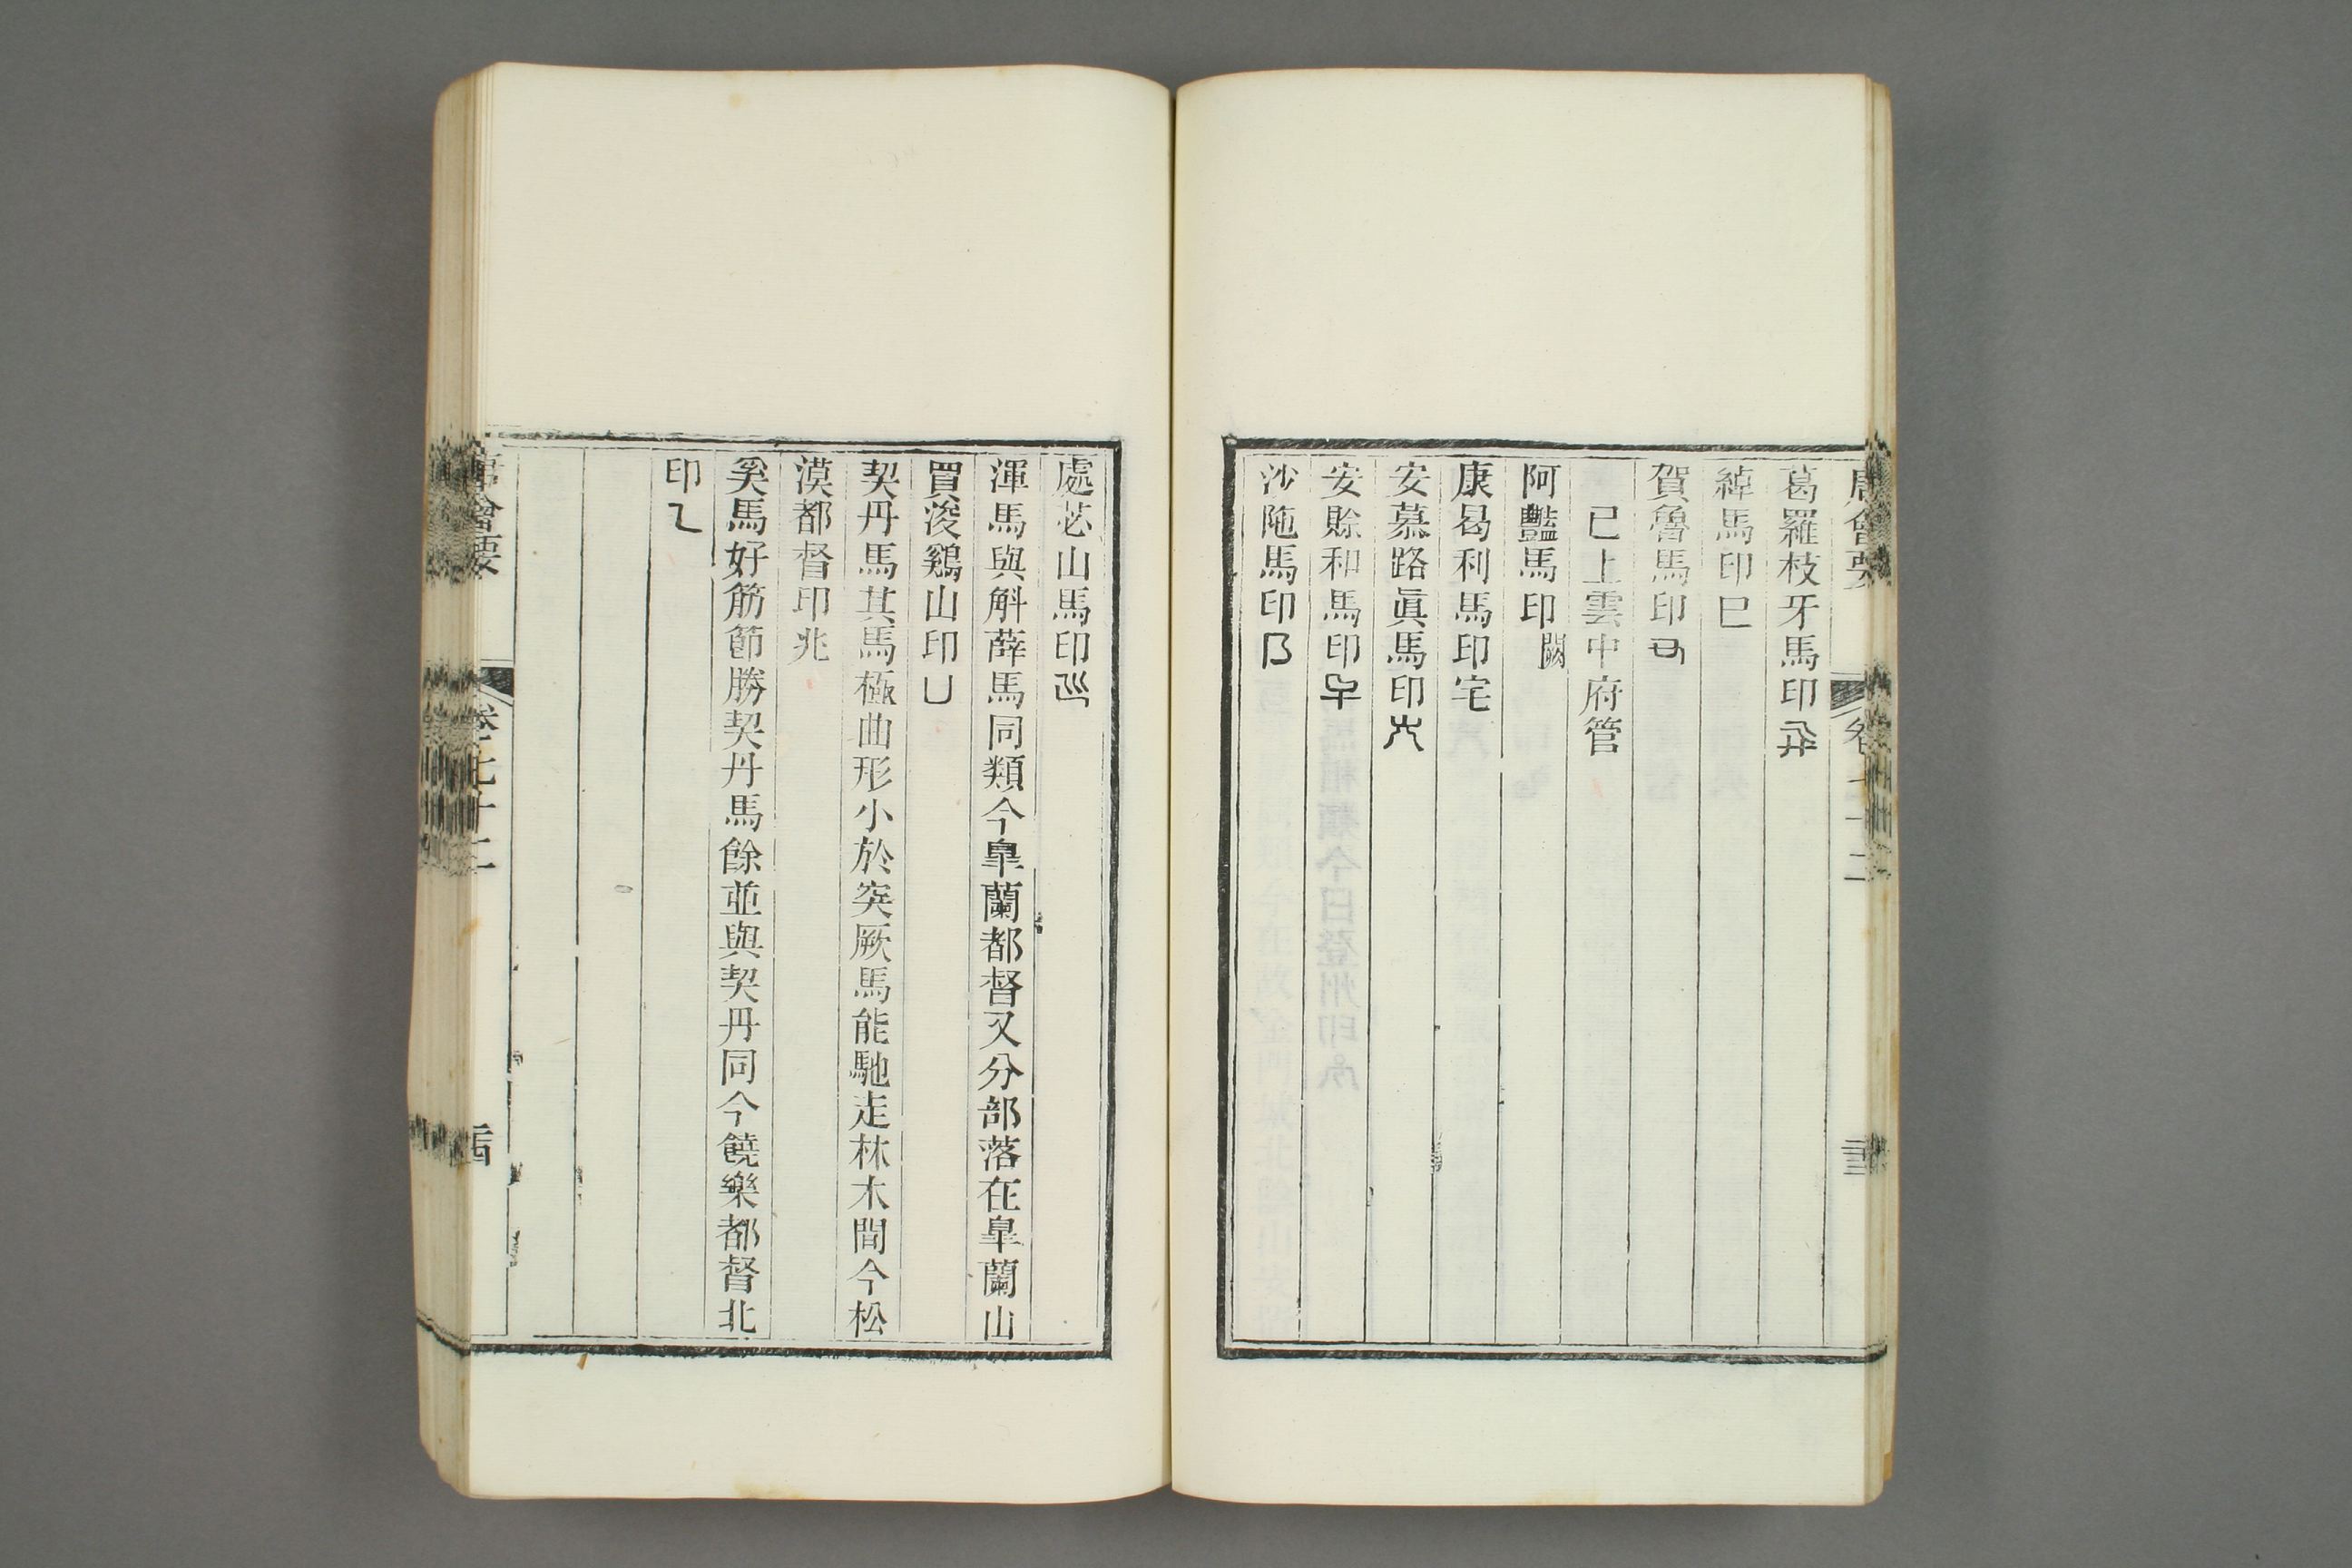 唐會要 卷七十二
葛羅枝牙馬印
綽馬印巳
賀魯馬印
已上雲中府管
阿豔馬印闕
康曷利馬印宅
安慕路眞馬印
安賒和馬印
沙陁馬印
處苾山馬印
渾馬與斛薛馬同類今臯蘭都督又分部落在臯蘭山
買浚鷄山印凵
契丹馬其馬極曲形小於突厥馬能馳走林木間今松
漠都督印兆
奚馬好筋節勝契丹馬餘並與契丹同今饒樂都督北
印
唐會要 卷七十二